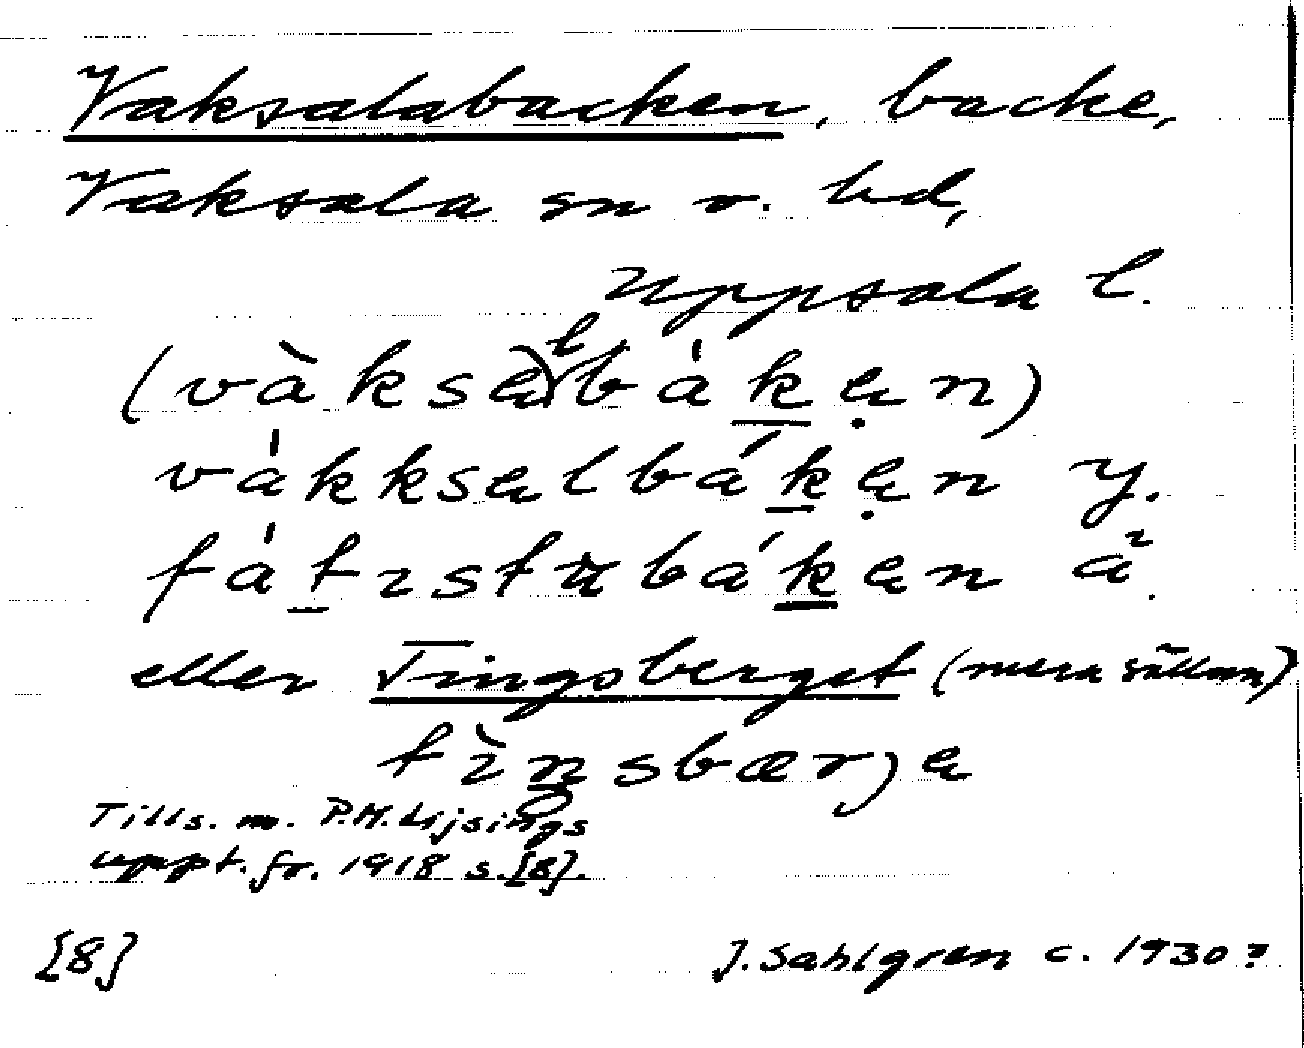 Vaksalabacken, backe,
Vaksala sn o. hd,
Uppsala l.
(vàksəlbàkən)
vàkksəlbákən y.
fàtɪstubákən ä.
eller Tingsberget (mera sällan)
tìŋsbærjə
Tills. m. P.M. Lijsings
uppt. fr. 1918 s. [8].
[8] J. Sahlgren c. 1930?